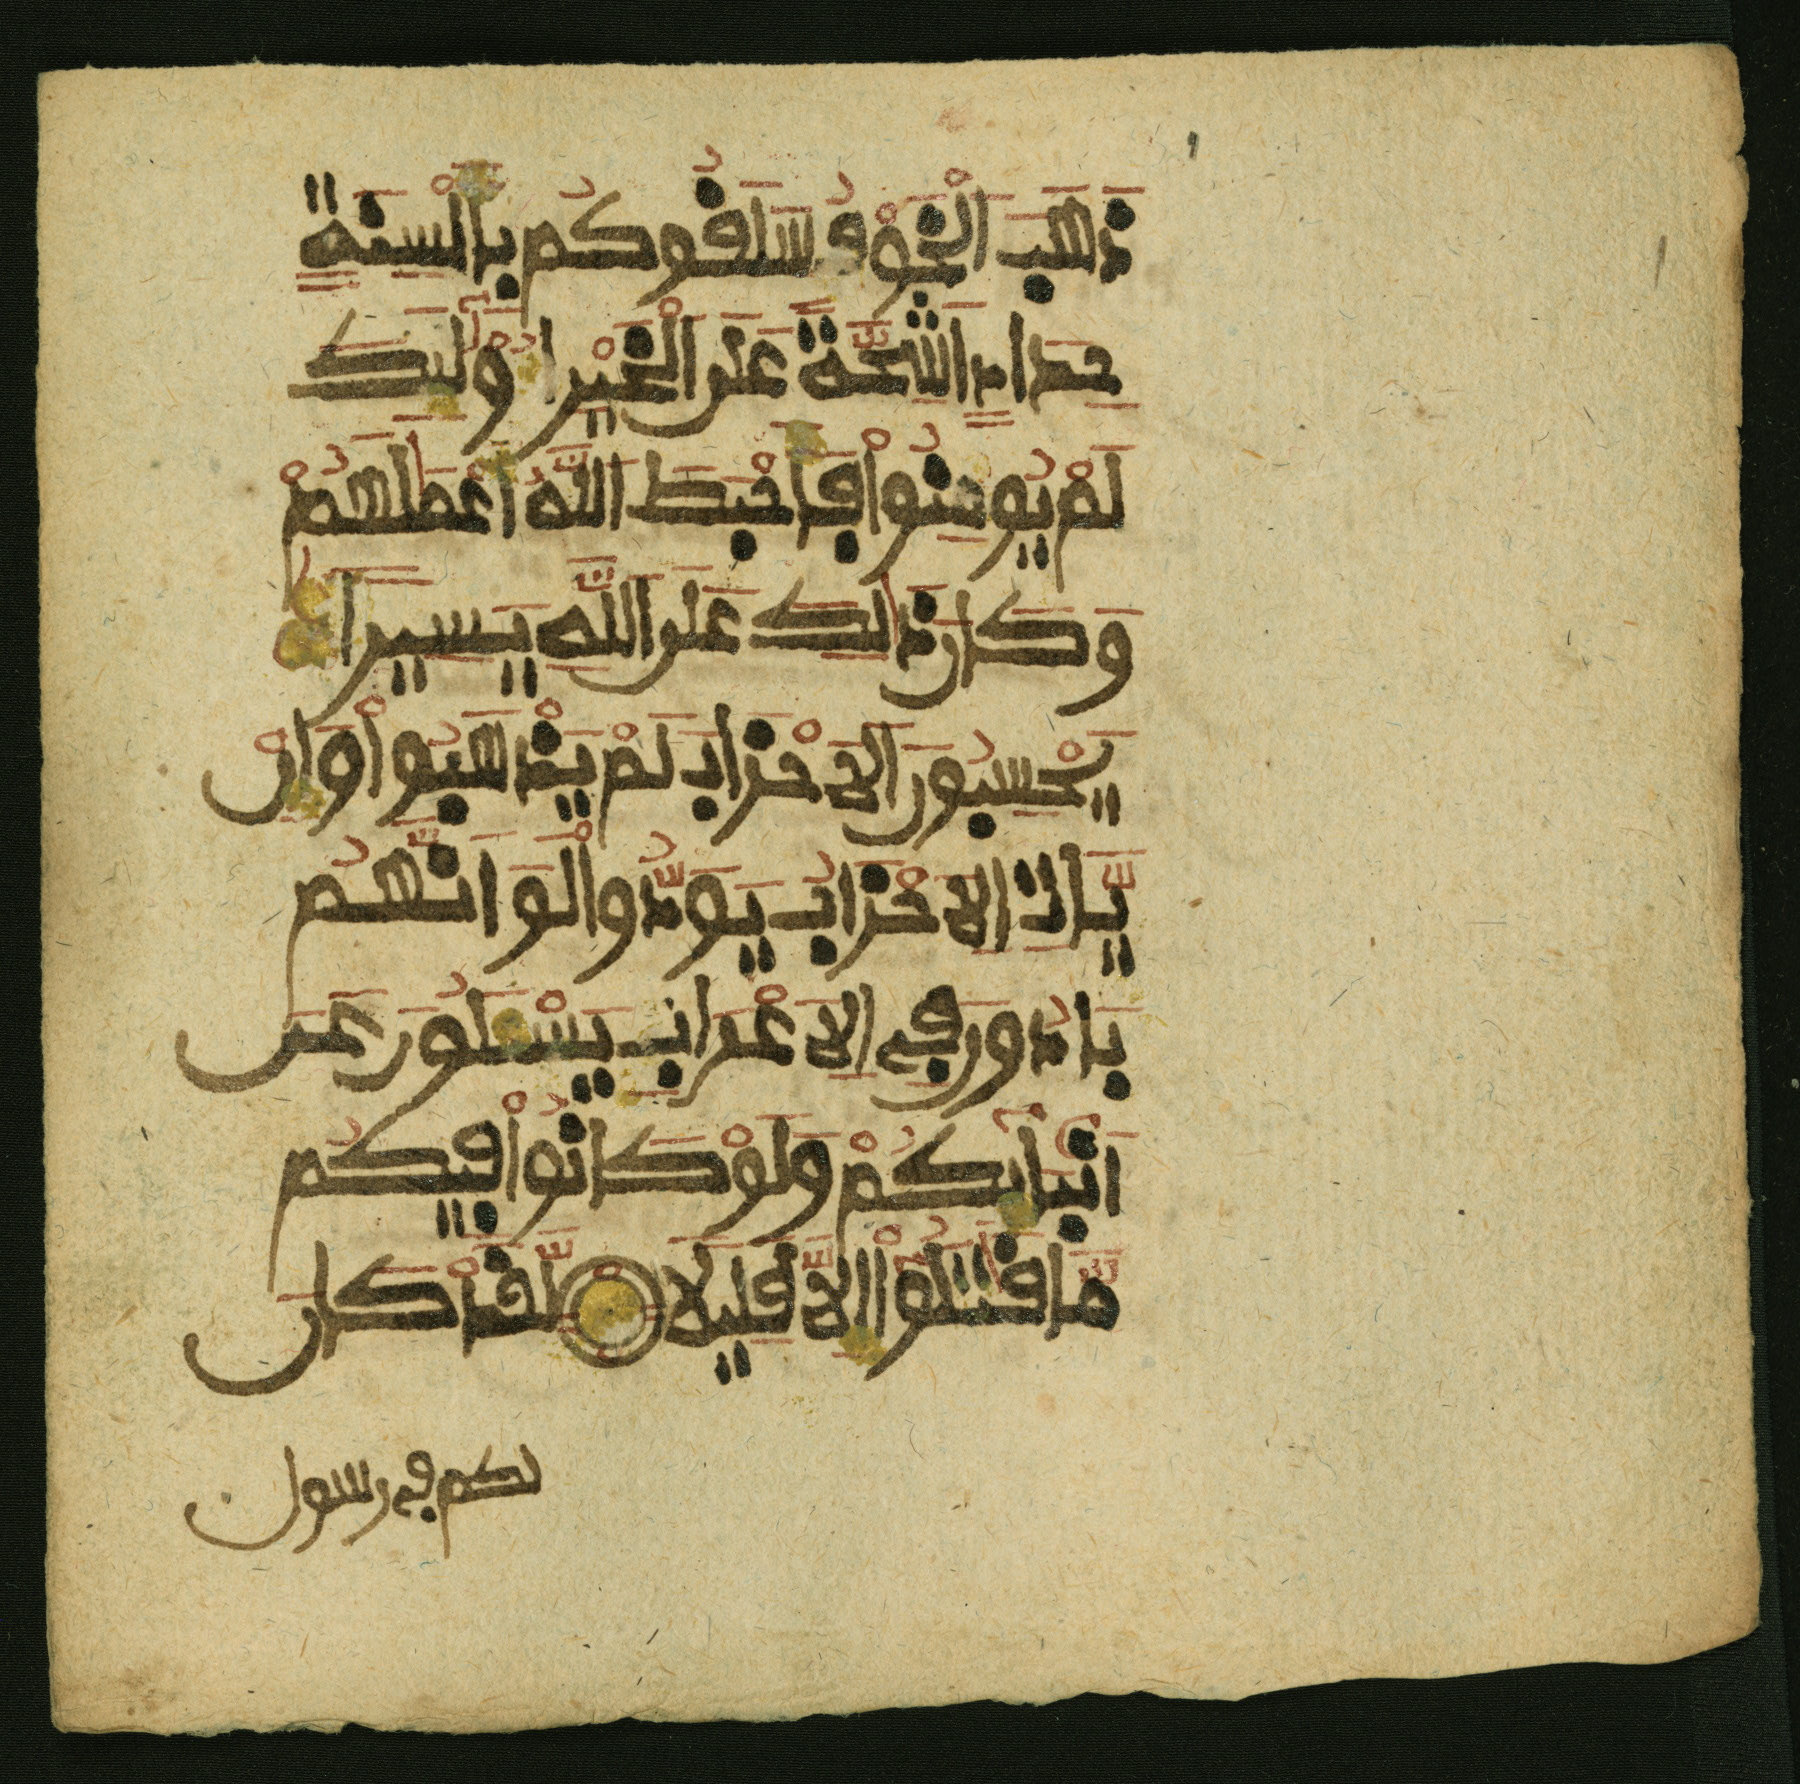 ذَهَبَ اَلْخَوْفُ سَلَقُوكُم بِأَلْسِنَةٍ
حِدَادٍ اَشِحَّةً عَلَى اَلْخَيْرِ أُوْلَٰٓئِكَ
لَمْ يُومِنُواْ فَأَحْبَطَ اَللَّهُ أَعْمَٰلَهُمْ
وَكَانَ ذَٰلِكَ عَلَى اَللَّهِ يَسِيراً
يَحْسِبُونَ اَلَاحْزَابَ لَمْ يَذْهَبُواْ وَإِنْ
يَّاتِ اِلَاحْزَابُ يَوَدُّواْ لَوَ انَّهُم
بَادُونَ فِي اِلَاعْرَابِ يَسْـَٔلُونَ عَنَ
اَنۢبَآئِكُمْ وَلَوْ كَانُواْ فِيكُم
مَّا قَٰتَلُوٓاْ إِلَّا قَلِيلًا لَّقَدْ كَانَ
لكم في رسول